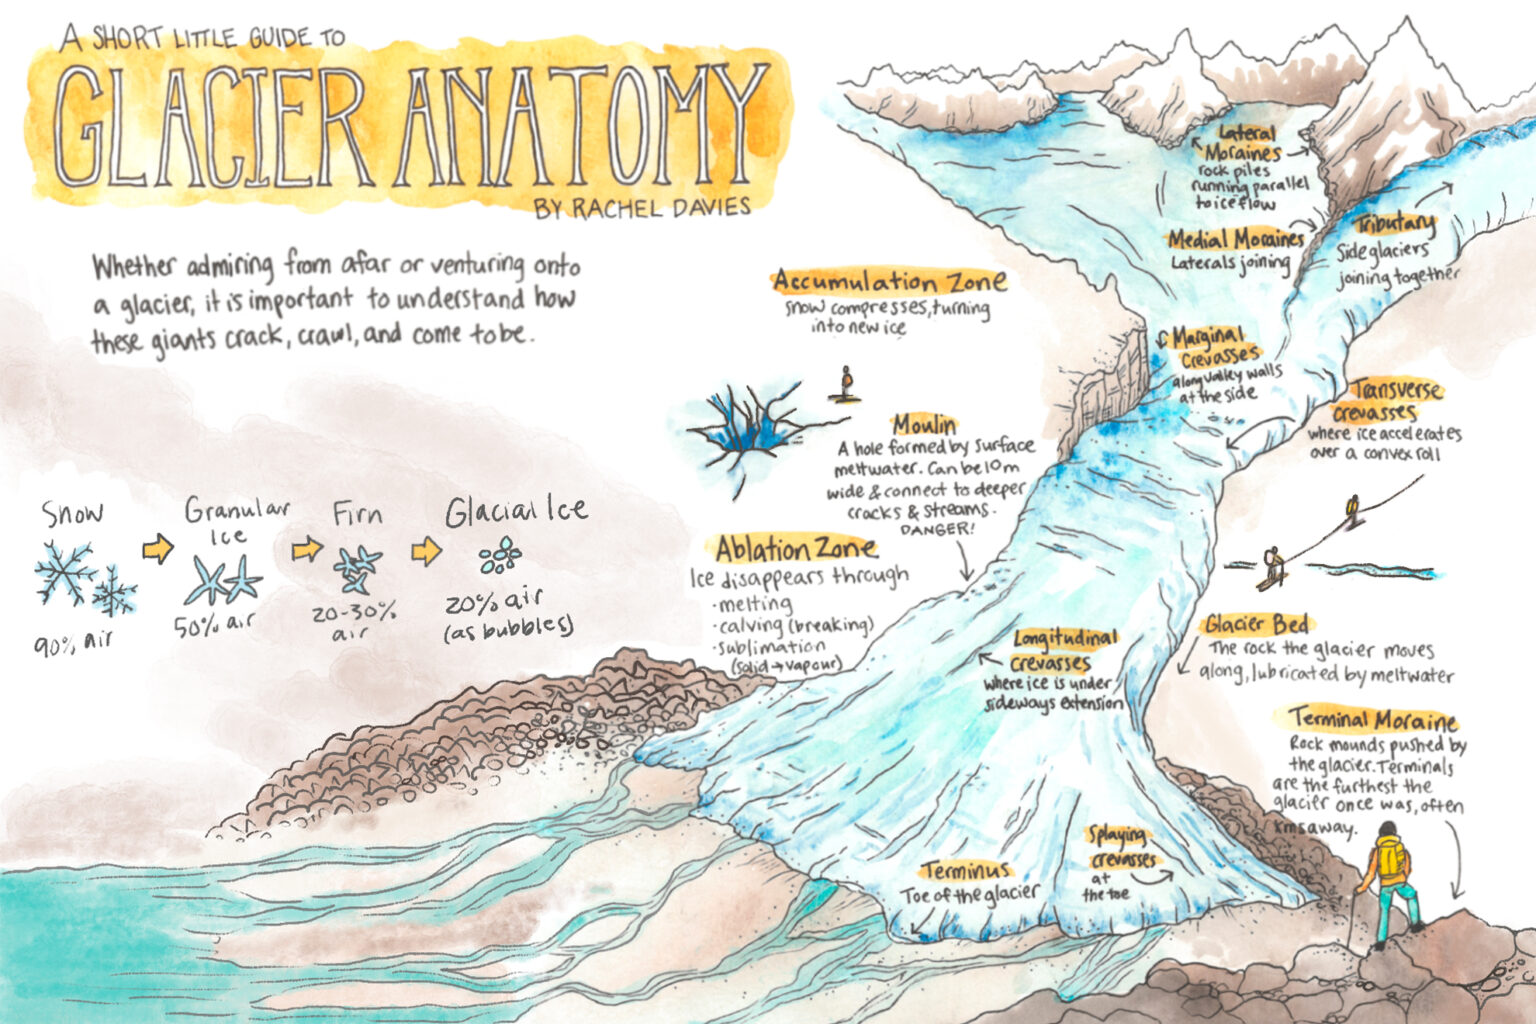 A SHORT LITTLE GUIDE TO
GLACIER ANATOMY
BY RACHEL DAVIES
Whether admiring from afar or venturing onto
a glacier, it is important to understand how
these giants crack, crawl, and come to be.
Snow
90% air
Granular
Ice
50% air
Firn
20-30%
air
Glacial Ice
20% air
(as bubbles)
Accumulation Zone
Snow compresses, turning
into new ice
Moulin
A hole formed by surface
meltwater. Can be 10m
wide & connect to deeper
cracks & streams.
DANGER!
Ablation Zone
Ice disappears through
·melting
·calving (breaking)
·sublimation
(solid→vapour)
Lateral
Moraines
rock piles
running parallel
to ice flow
Medial Moraines
Laterals joining
Tributary
Side glaciers
joining together
Marginal
Crevasses
along valley walls
at the side
Transverse
crevasses
where ice accelerates
over a convex roll
Glacier Bed
The rock the glacier moves
along, lubricated by meltwater
Longitudinal
crevasses
where ice is under
sideways extension
Terminal Moraine
Rock mounds pushed by
the glacier. Terminals
are the furthest the
glacier once was, often
kms away.
Splaying
crevasses
at
the toe
Terminus
Toe of the glacier